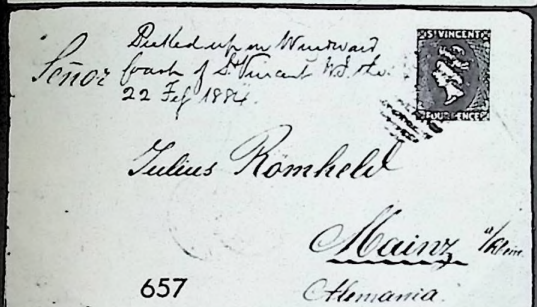 Picked up on Windward
Señor Coast of St Vincent W.I.
22 Feb 1884.
ST VINCENT
FOUR PENCE
Julius Römheld
Mainz a/Rhein
Alemania.
657